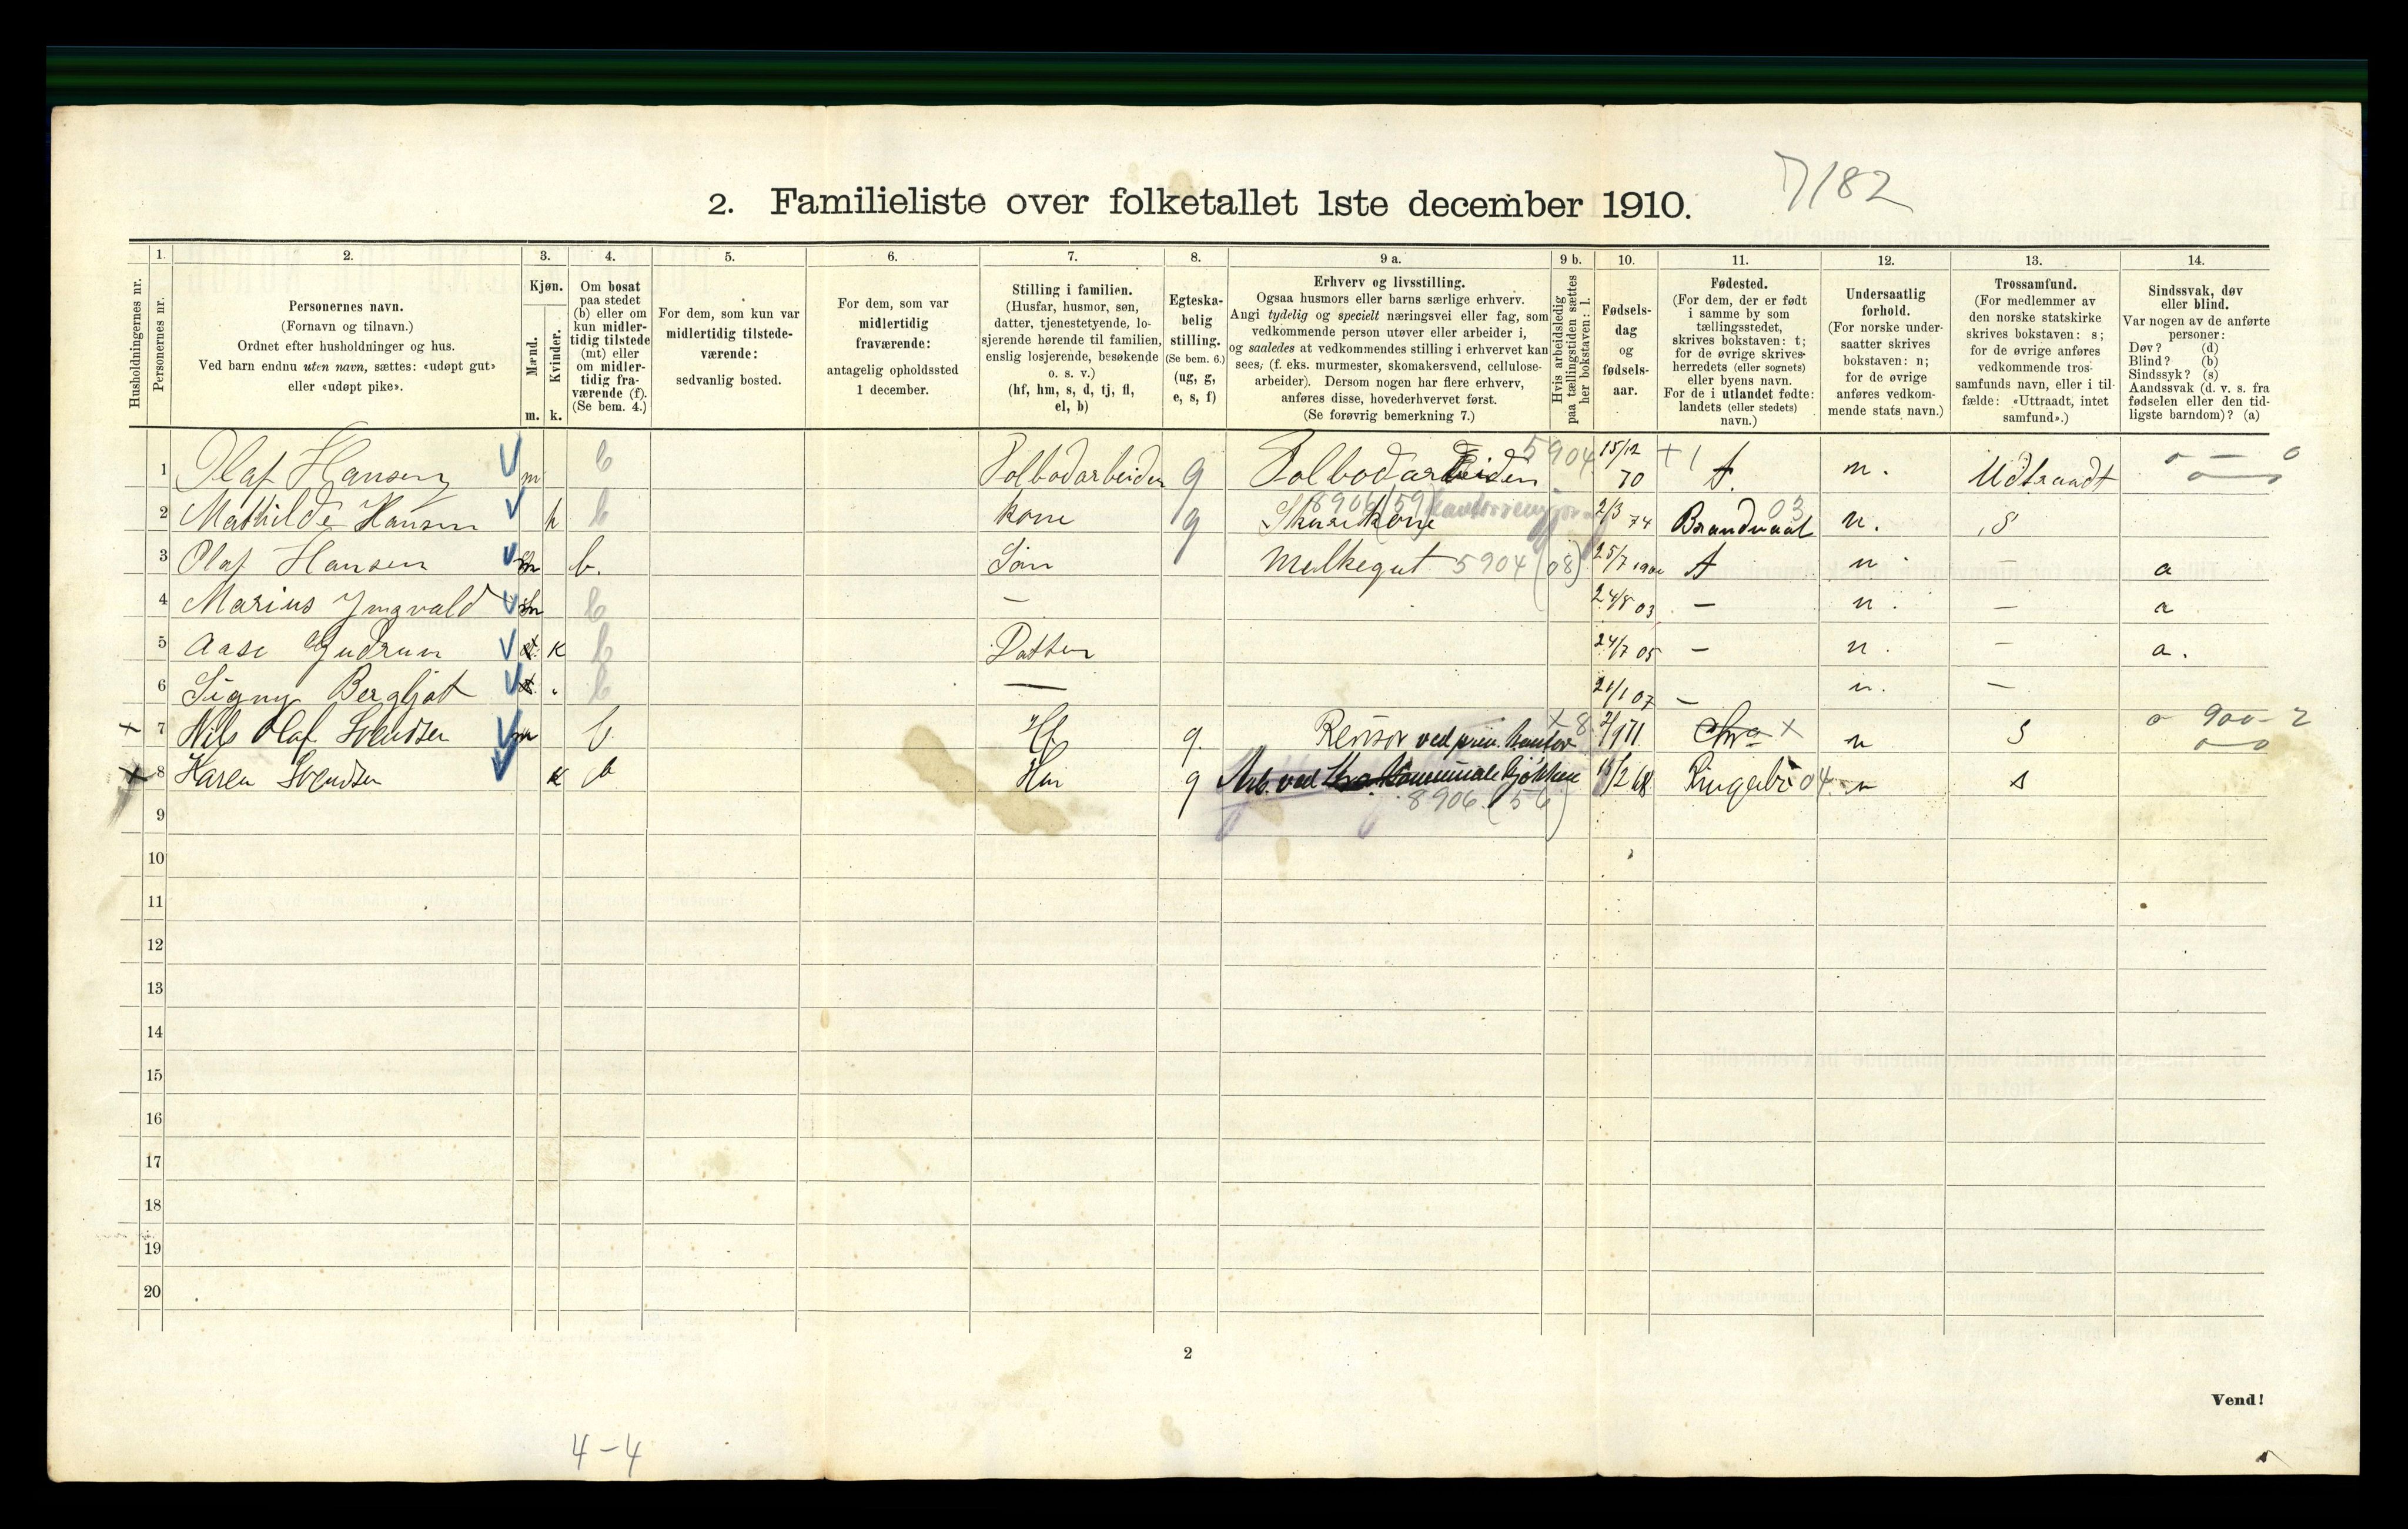 7/82
2. Familieliste over folketallet 1ste december 1910.
Husholdningernes nr.
1. Personernes nr.
2. Personernes navn.
(Fornavn og tilnavn.)
Ordnet efter husholdninger og hus.
Ved barn endnu uten navn, sættes: «udøpt gut»
eller «udøpt pike».
3. Kjøn.
Mænd. m.
Kvinder. k.
4. Om bosat
paa stedet
(b) eller om
kun midler-
tidig tilstede
(mt) eller
om midler-
tidig fra-
værende (f).
(Se bem. 4.)
5. For dem, som kun var
midlertidig tilstede-
værende:
sedvanlig bosted.
6. For dem, som var
midlertidig
fraværende:
antagelig opholdssted
1 december.
7. Stilling i familien.
(Husfar, husmor, søn,
datter, tjenestetyende, lo-
sjerende hørende til familien,
enslig losjerende, besøkende
o. s. v.)
(hf, hm, s, d, tj, fl,
el, b)
8. Egteska-
belig
stilling.
(Se bem. 6.)
(ug, g,
e, s, f)
9 a. Erhverv og livsstilling.
Ogsaa husmors eller barns særlige erhverv.
Angi tydelig og specielt næringsvei eller fag, som
vedkommende person utøver eller arbeider i,
og saaledes at vedkommendes stilling i erhvervet kan
sees, (f. eks. murmester, skomakersvend, cellulose-
arbeider). Dersom nogen har flere erhverv,
anføres disse, hovederhvervet først.
(Se forøvrig bemerkning 7.)
9 b. Hvis arbeidsledig
paa tællingstiden sættes
her bokstaven: l.
10. Fødsels-
dag
og
fødsels-
aar.
11. Fødested.
(For dem, der er født
i samme by som
tællingsstedet,
skrives bokstaven: t;
for de øvrige skrives
herredets (eller sognets)
eller byens navn.
For de i utlandet fødte:
landets (eller stedets)
navn.)
12. Undersaatlig
forhold.
(For norske under-
saatter skrives
bokstaven: n;
for de øvrige
anføres vedkom-
mende stats navn.)
13. Trossamfund.
(For medlemmer av
den norske statskirke
skrives bokstaven: s;
for de øvrige anføres
vedkommende tros-
samfunds navn, eller i til-
fælde: «Uttraadt, intet
samfund».)
14. Sindssvak, døv
eller blind.
Var nogen av de anførte
personer:
Døv? (d)
Blind? (b)
Sindssyk? (s)
Aandssvak (d. v. s. fra
fødselen eller den tid-
ligste barndom)? (a)
1 Olaf Hansen m b Tolbodarbeider g Tolbodarbeider 5904 15/12 70 t. n. Udtraadt
2 Mathilde Hansen k b kone g Skurekone 8906 (59) 2/3 74 03 n. S
3 Olaf Hansen m b. Søn Melkegut 5904 (08) 25/7 t n – a
4 Marius Yngvald m b – 24/8 03 – n. – a
5 Aase Gudrun k b Datter 24/7 05 – n. – a.
6 Signy Bergljot b — 21/1 07 – n. –
+ 7 Nils Olaf Svendsen m b Hf g. ved priv. kontor × 8 Chra × n S 900-2
+ 8 Karen Svendsen k b Hm g Arb. ved Kommunale Kjøkken 8906 (56) 15/2 68 Ringebo 04 n s
9
10
11
12
13
14
15
16
17
18
19
20
2
Vend!
4-4